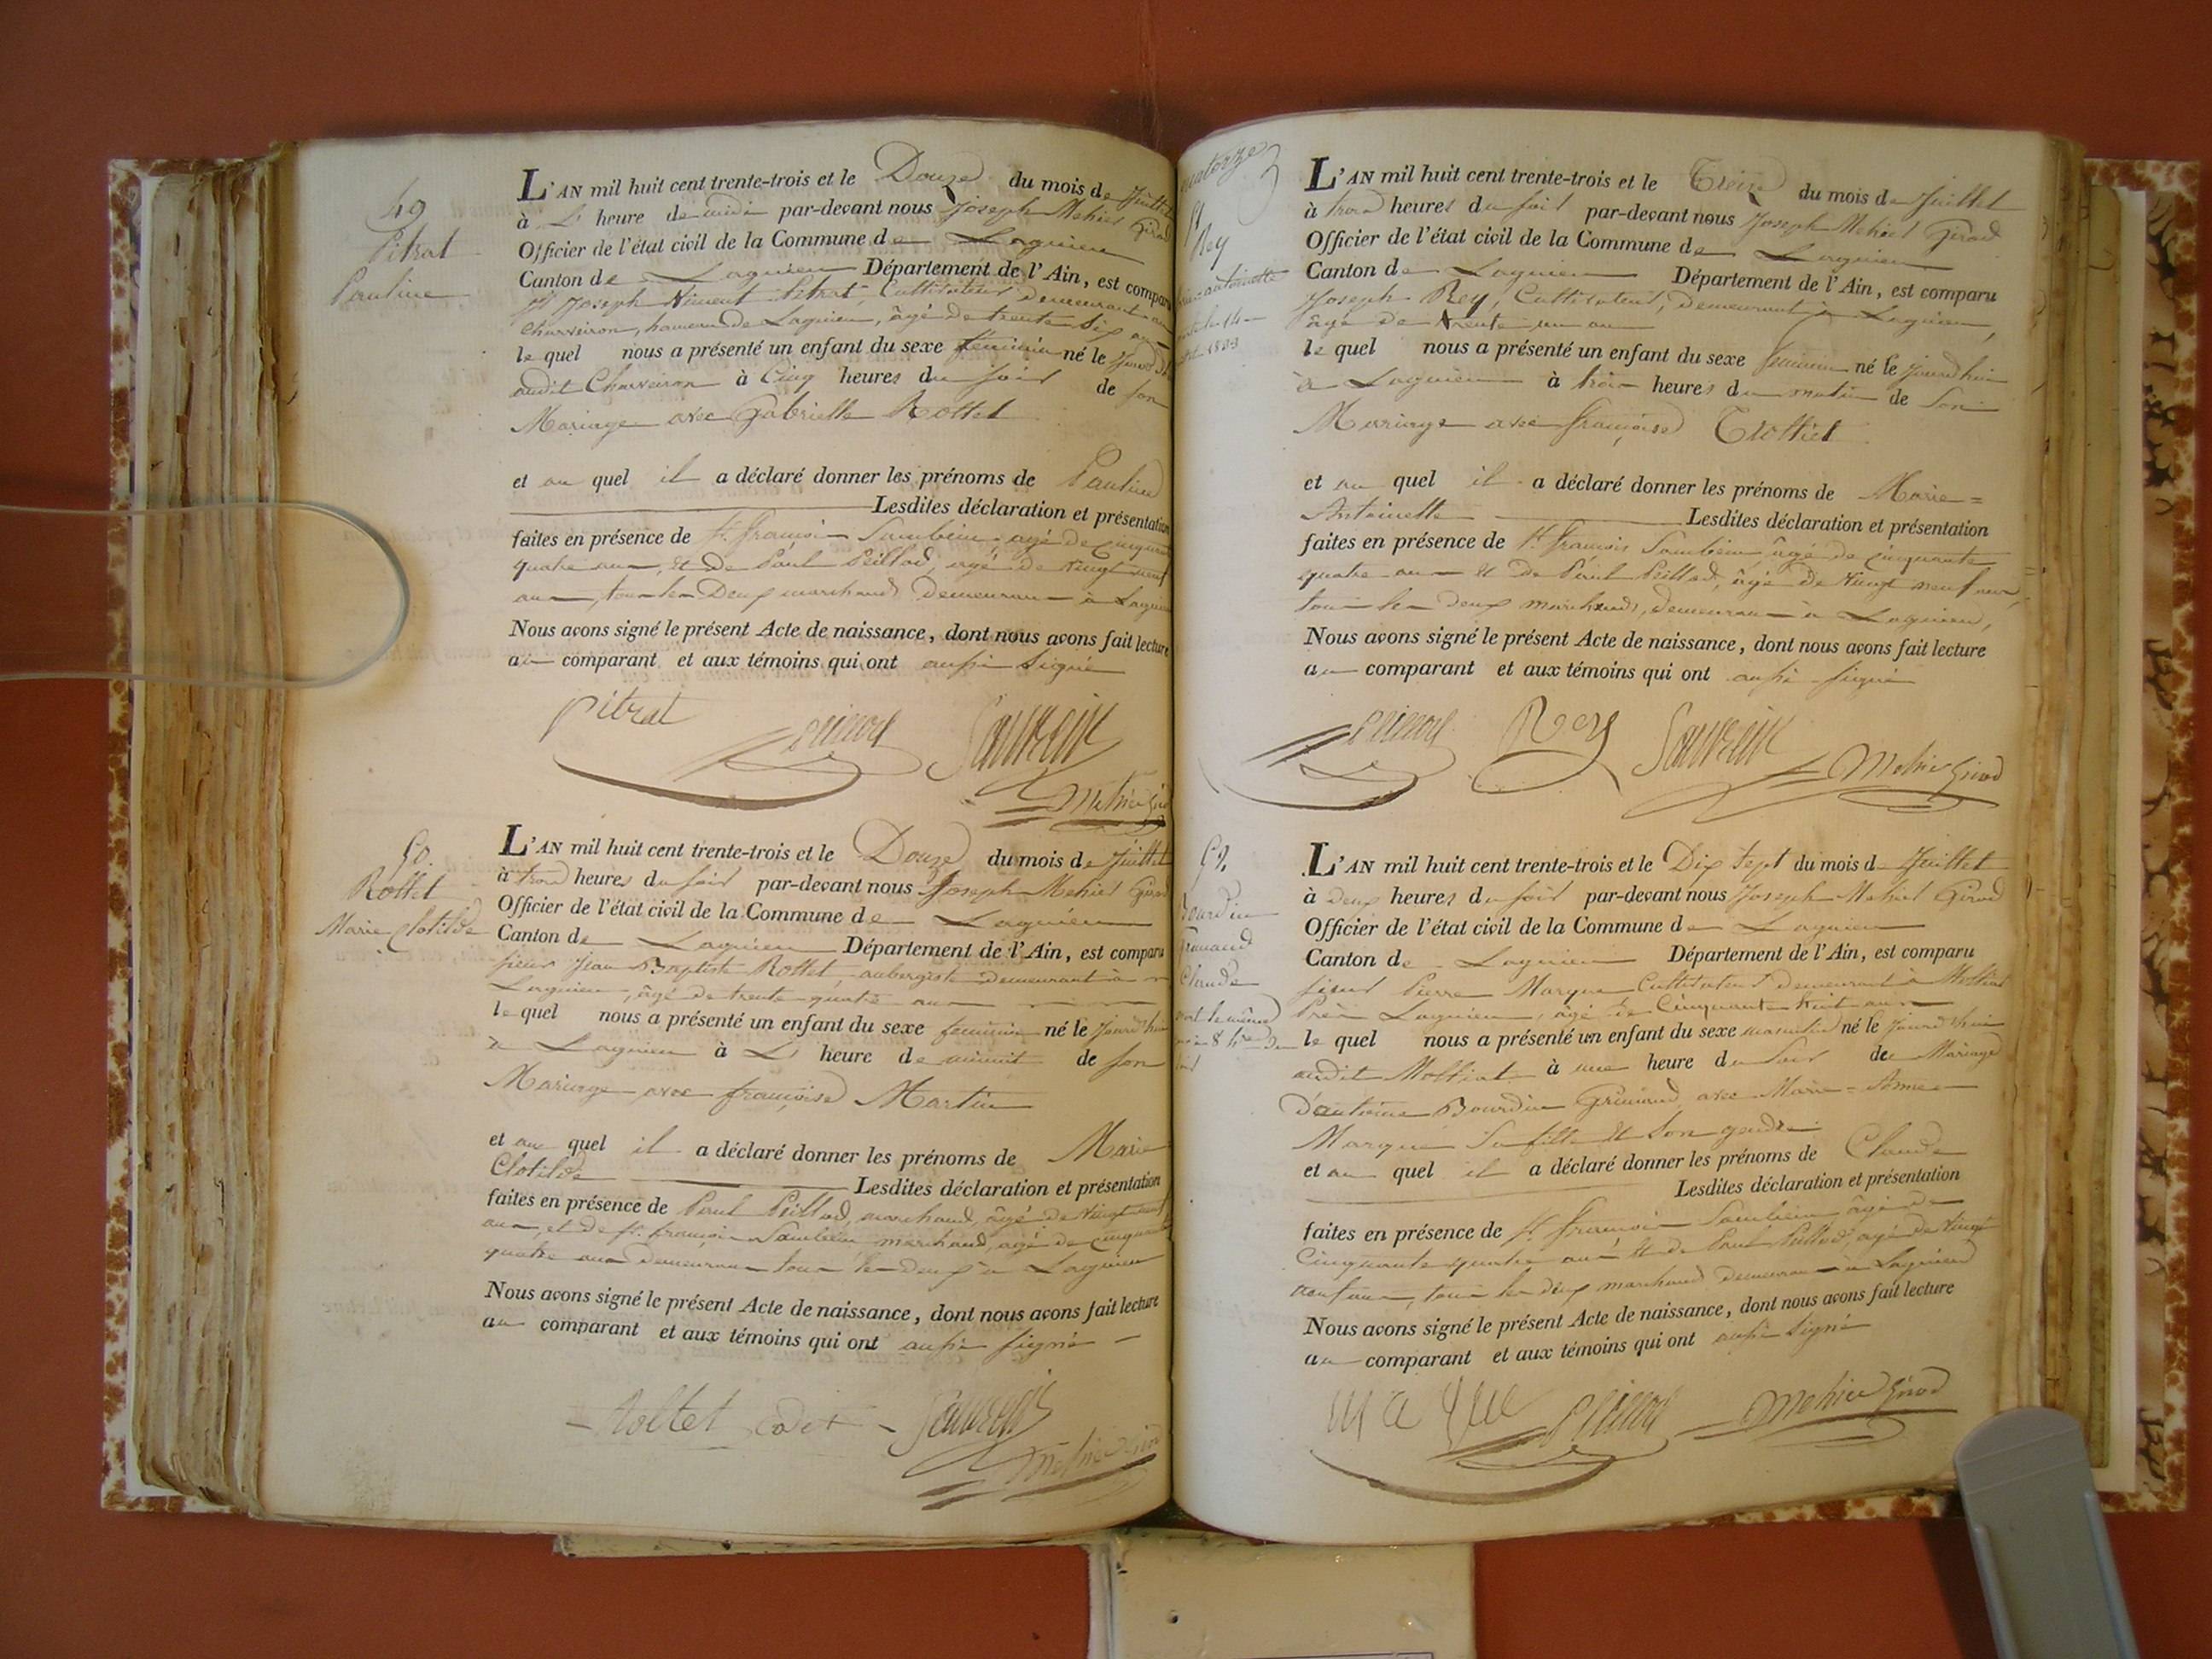 49
Pitrat
Pauline
L'AN mil huit cent trente-trois et le Douze du mois de Juillet
à L' heure de midi par-devant nous Joseph Mehier Girod
Officier de l'état civil de la Commune de Lagnieu
Canton de Lagnieu Département de l'Ain, est comparu
Sr Joseph Vincent Pitrat, Cultivateur demeurant au
Charveiron, hameau de Lagnieu, âgé de trente six ans
lequel nous a présenté un enfant du sexe féminin né le jourd'hier
audit Charveiron à Cinq heures du soir de son
Mariage avec Gabrielle Rottet
et au quel il a déclaré donner les prénoms de Pauline
Lesdites déclaration et présentation
faites en présence de Sr françois Sambein âgé de cinquante
quatre ans, et de Paul Peillod, âgé de vingt neuf
ans, tous les Deux marchands demeurans à Lagnieu
Nous avons signé le présent Acte de naissance, dont nous avons fait lecture
au comparant et aux témoins qui ont aussi signé
Pitrat
Mehier Girod
50
Rottet
Marie Clotilde
L'AN mil huit cent trente-trois et le Douze du mois de Juillet
à trois heures du soir par-devant nous Joseph Mehier Girod
Officier de l'état civil de la Commune de Lagnieu
Canton de Lagnieu Département de l'Ain, est comparu
sieur Jean Baptiste Rottet, aubergiste demeurant à
Lagnieu, âgé de trente quatre ans
lequel nous a présenté un enfant du sexe féminin né le jourd'hui
à Lagnieu à L' heure de minuit de son
Mariage avec françoise Martin
et au quel il a déclaré donner les prénoms de Marie
Clotilde Lesdites déclaration et présentation
faites en présence de Paul Peillod, marchand, âgé de vingt neuf
ans, et de Sr. françois Sambein marchand, âgé de cinquante
quatre ans demeurans tous les deux à Lagnieu
Nous avons signé le présent Acte de naissance, dont nous avons fait lecture
au comparant et aux témoins qui ont aussi signé
Rottet cadet
Mehier Girod
quatorze
51
Rey
Marie antoinette
L'AN mil huit cent trente-trois et le Treize du mois de Juillet
à trois heures du soir par-devant nous Joseph Mehier Girod
Officier de l'état civil de la Commune de Lagnieu
Canton de Lagnieu Département de l'Ain, est comparu
Joseph Rey, Cultivateur, demeurant à Lagnieu,
âgé de trente un ans
lequel nous a présenté un enfant du sexe féminin né le jourd'hui
à Lagnieu à trois heures du matin de son
Mariage avec françoise Trottiet
et au quel il a déclaré donner les prénoms de Marie=
Antoinette Lesdites déclaration et présentation
faites en présence de Sr françois Sambein, âgé de cinquante
quatre ans et de Paul Peillod, âgé de vingt neuf ans,
tous les deux marchands, demeurans à Lagnieu,
Nous avons signé le présent Acte de naissance, dont nous avons fait lecture
au comparant et aux témoins qui ont aussi signé
Rey
Mehier Girod
52
Bourdin
Grimaud
Claude
mort le même
L'AN mil huit cent trente-trois et le Dix Sept du mois de Juillet
à deux heures du soir par-devant nous Joseph Mehier Girod
Officier de l'état civil de la Commune de Lagnieu
Canton de Lagnieu Département de l'Ain, est comparu
sieur Pierre Marque Cultivateur demeurant à Molliat
Près Lagnieu, âgé de Cinquante huit ans
lequel nous a présenté un enfant du sexe masculin né le jourd'hui
audit Molliat à une heure du Soir de Mariage
d'antoine Bourdin Grimaud, avec Marie=Aimée
Marque sa fille et son gendre
et au quel il a déclaré donner les prénoms de Claude
Lesdites déclaration et présentation
faites en présence de Sr françois Sambein âgé de
Cinquante quatre ans et de Paul Peillod, âgé de vingt
neuf ans, tous les deux marchand demeurans à Lagnieu
Nous avons signé le présent Acte de naissance, dont nous avons fait lecture
au comparant et aux témoins qui ont aussi signé
Marque
Mehier Girod